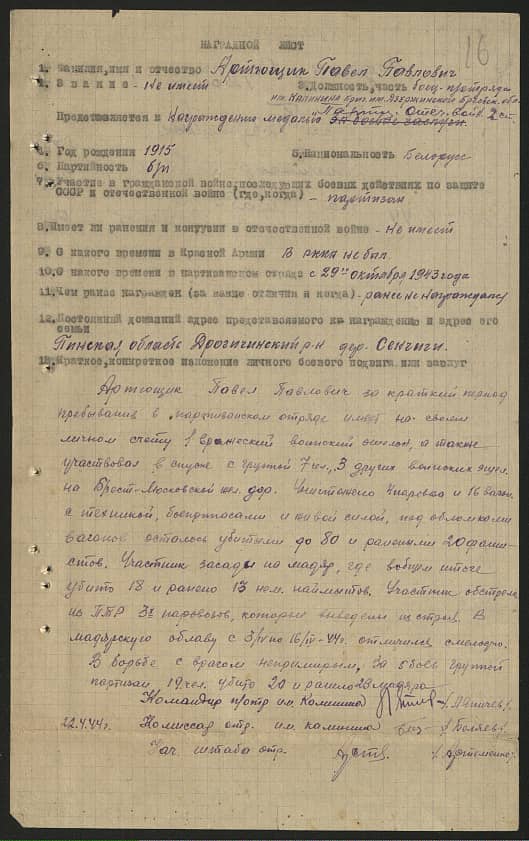 16
НАГРАДНОЙ ЛИСТ
1. Фамилия, имя и отчество Артющик Павел Павлович
2. Звание - Не имеет 3. Должность, часть боец п-отряда
им. Калинина бриг. им. Дзержинского Брестск. обл.
Представляется к Награждению медалью "Партиз. отеч. войн." 2 ст.
за боевые заслуги.
4. Год рождения 1915 5. Национальность Белорус
6. Партийность б/п
7. Участие в гражданской войне, последующих боевых действиях по защите
СССР и отечественной войне (где, когда) - партизан
8. Имеет ли ранения и контузии в отечественной войне - Не имеет
9. С какого времени в Красной Армии В РККА не был
10. С какого времени в партизанском отряде с 29го октября 1943 года
11. Чем ранее награжден (за какие отличия и когда) - ранее не награждался
12. Постоянный домашний адрес представляемого к награждению и адрес его
семьи
Пинская область Дрогичинский р-н дер. Сенчицы.
13. Краткое, конкретное изложение личного боевого подвига или заслуг
Артющик Павел Павлович за краткий период
пребывания в партизанском отряде имеет на своем
личном счету 1 вражеский воинский эшелон, а также
участвовал в спуске с группой 7 чел., 3 других воинских эшел.
на Брест-Московской жел. дор. Уничтожено 4 паровоза и 16 вагон.
с техникой, боеприпасами и живой силой, под обломками
вагонов осталось убитыми до 80 и ранеными 20 фаши-
стов. Участник засады на мадьяр, где в общем итоге
убито 18 и ранено 13 нем. наймитов. Участник обстрела
из ПТР 3х паровозов, которые выведены из строя. В
мадьярскую облаву с 3/IV по 16/IV-44г. отличился смелостью.
В борьбе с врагом непримирим. За 5 боев группой
партизан 19 чел. убито 20 и ранено 23 мадьяра
Командир п/отр им. Калинина
22.4.44г. Комиссар отр. им. Калинина /Беляев/
Нач. штаба отр. /Артеменко/